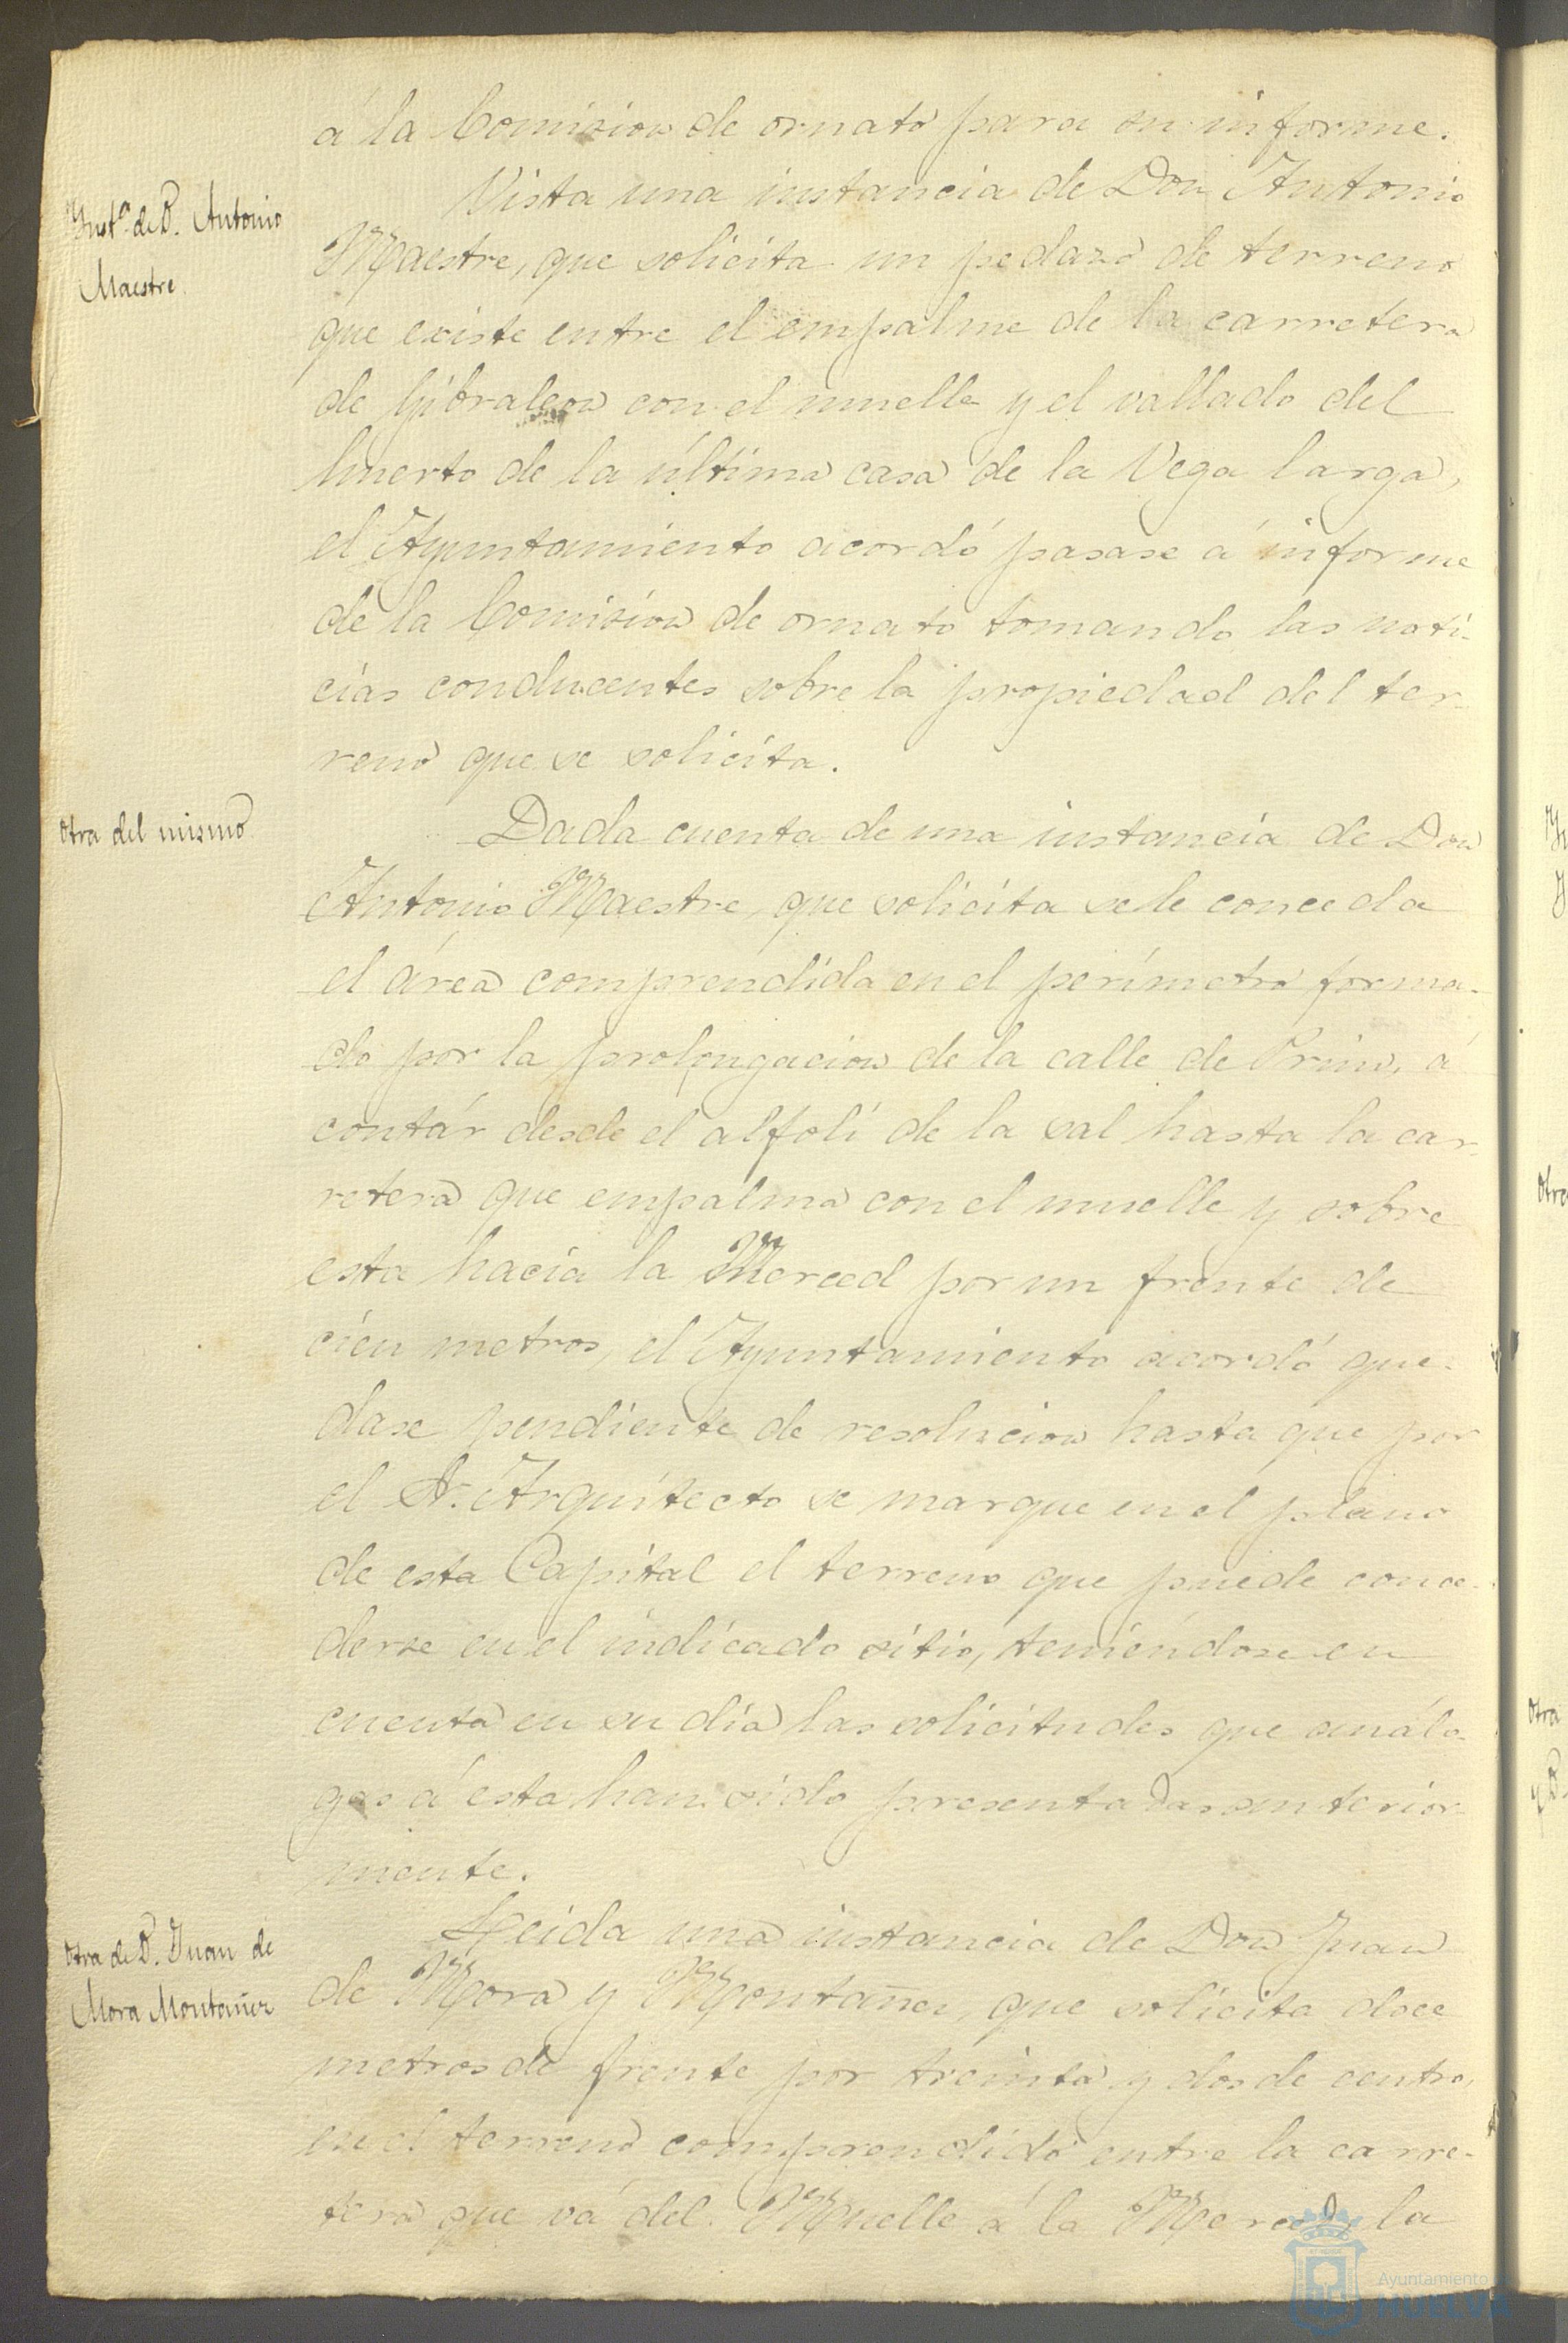 á la Comision de ornato para su informe.
Inst.ª de D. Antonio
Maestre.
Vista una instancia de Don Antonio
Maestre, que solicita un pedazo de terreno
que existe entre el empalme de la carretera
de Gibraleon con el muelle y el vallado del
huerto de la última casa de la Vega larga,
el Ayuntamiento acordó pasase á informe
de la Comision de ornato tomando las noti-
cias conducentes sobre la propiedad del ter-
reno que se solicita.
Otra del mismo
Dada cuenta de una instancia de Don
Antonio Maestre, que solicita se le conceda
el área comprendida en el perímetro forma-
do por la prolongacion de la calle de Prim, á
contár desde el alfolí de la sal hasta la car-
retera que empalma con el muelle y sobre
esta hacia la Merced por un frente de
cien metros, el Ayuntamiento acordó que-
dase pendiente de resolucion hasta que por
el Sr. Arquitecto se marque en el plano
de esta Capital el terreno que puede conce-
derse en el indicado sitio, teniéndose en
cuenta en su dia las solicitudes que análo-
gas á esta han sido presentadas anterior-
mente.
Otra de D. Juan de
Mora Montañez
Leida una instancia de Don Juan
de Mora y Montañez, que solicita doce
metros de frente por treinta y dos de centro,
en el terreno comprendido entre la carre-
tera que vá del Muelle á la Merced, la
Ayuntamiento de
HUELVA